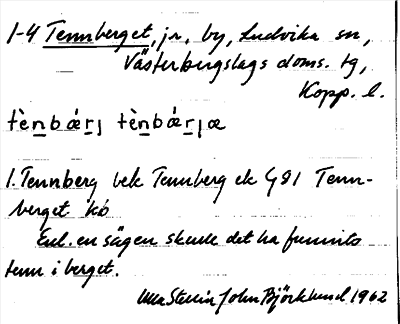 1-4 Tennberget, jr., by, Ludvika sn,
Västerbergslags doms. tg,
Kopp. l.
tὲnbǽrj tὲnbǽrjæ
1. Tennberg bek Tennberg ek G91 Tenn-
berget kb
Enl. en sägen skulle det ha funnits
tenn i berget.
Ulla Stellin John Björklund 1962